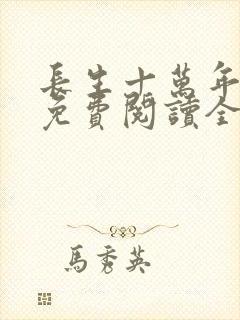 長生十萬年
免費閱讀全
馬秀英